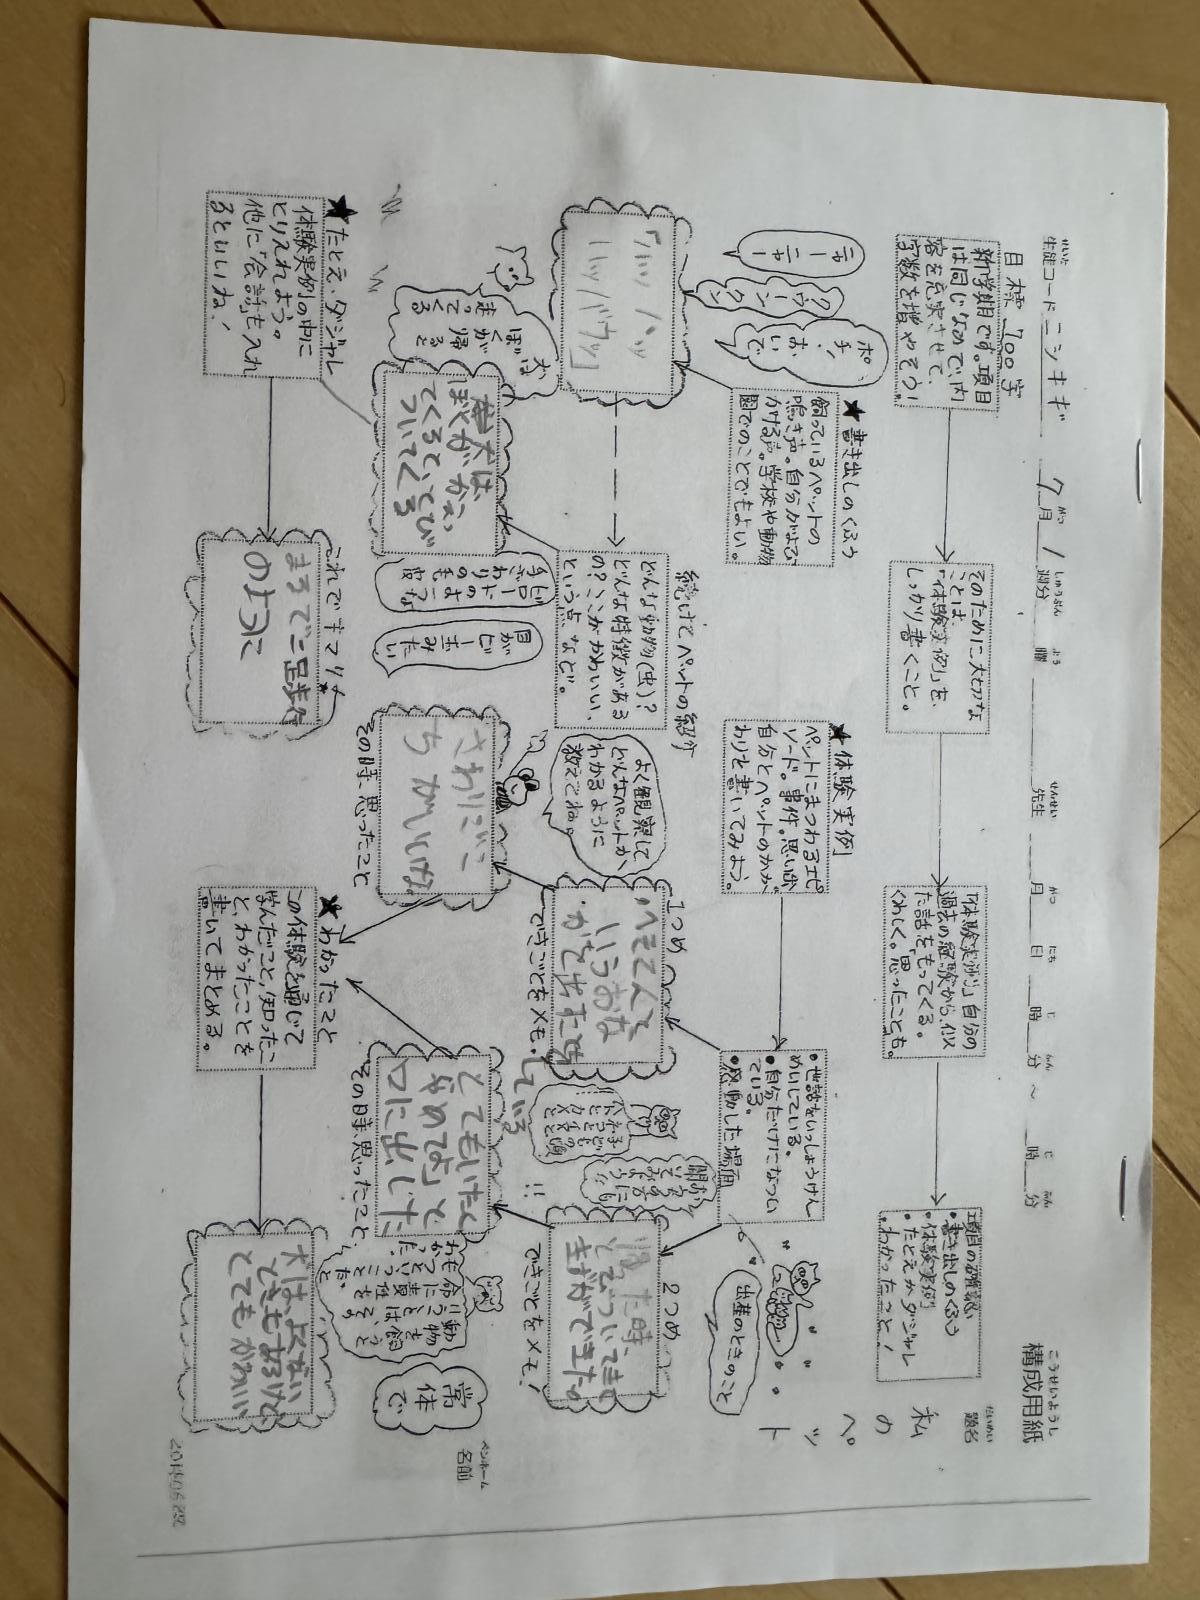 構成用紙
こうせいようし
題名
だいめい
私のペット
名前
ペンネーム
生徒コード ニシキギ 7月1週分 曜 先生 月 日 時 分 ~ 時 分
目標 700字
新学期です。項目
は同じなので、内
容を充実させて、
字数を増やそう!
そのために大切な
ことは、
「体験実例」を、
しっかり書くこと。
「体験実例」自分の
過去の経験から、似
た話をもってくる。
くわしく。思ったことも。
項目の確認
・書き出しのくふう
・体験実例
・たとえかダジャレ
・わかったこと!
★書き出しのくふう
飼っているペットの
鳴き声。自分がよび
かける声。学校や動物
園でのことでもよい。
ポチ、
おいで
クゥーン
クン
ニャー
ニャー
「ハッハッ
ハッハッバウッ」
続けてペットの紹介
どんな動物(虫)?
どんな特徴がある
の?ここがかわいい、
という点など。
よく観察して
どんなペットか、
わかるように
教えてね。
犬は
ぼくが帰ると
走ってくる
犬は、
ぼくが、かえっ
てくると、とび
ついてくる
ビロードのような
手ざわりの毛皮
目が
ビー玉みたい
★体験実例
ペットにまつわるエピ
ソード。事件。思い出。
自分とペットのかか
わりを書いてみよう。
・世話をいっしょうけん
めいしている。
・自分だけになつい
ている。
・感動した場面
出産のときのこと
1つめ
へそてんと
いうおな
かを出すたち
できごとをメモ!
している
さわりごこ
ちがいいな
その時、思ったこと
2つめ
帰った時、
とびついてきて
きずができたの
できごとをメモ!
とてもいたく
やめてよ」と
口に出した
その時、思ったこと
動物を
飼うことは責任をもつこと
だ。
常体で
★たとえ・ダジャレ
体験実例の中に
とりえれよう。
他に「会話」も入れ
るといいね!
これでキマリ★
まるで二足歩行
のように
★わかったこと
この体験を通じて
学んだこと、知ったこ
と、わかったことを
書いてまとめる。
犬は、よくない
ときもあるけど、
とてもかわいい